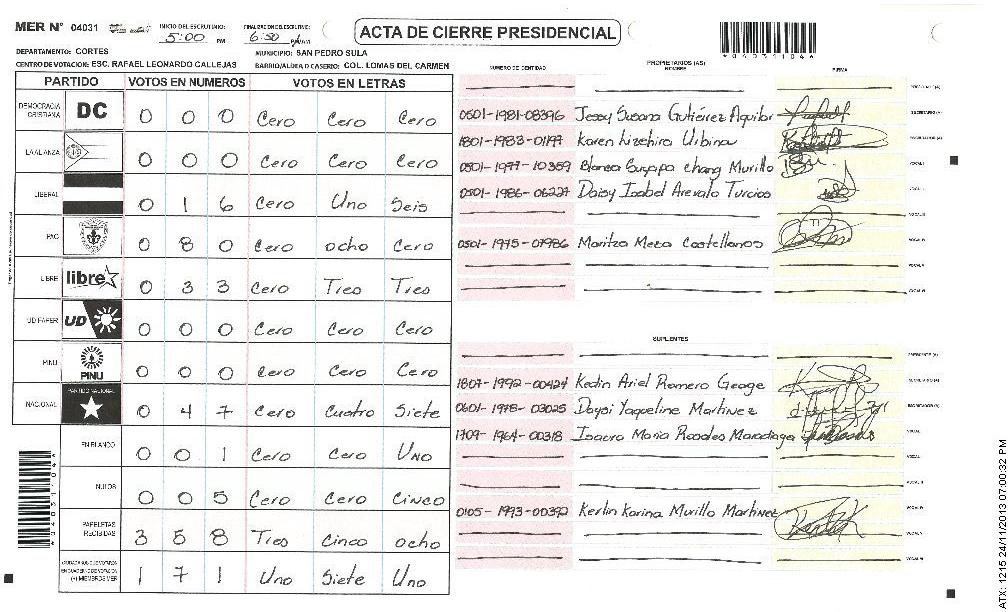 MER N° 04031
INICIO DEL ESCRUTINIO: 5:00 PM
FINALIZACION DEL ESCRUTINIO: 6:50 PM
ACTA DE CIERRE PRESIDENCIAL
*040310 4*
DEPARTAMENTO: CORTES
MUNICIPIO: SAN PEDRO SULA
CENTRO DE VOTACION: ESC. RAFAEL LEONARDO CALLEJAS
BARRIO/ALDEA O CASERIO: COL. LOMAS DEL CARMEN
PARTIDO VOTOS EN NUMEROS VOTOS EN LETRAS
DEMOCRACIA CRISTIANA DC 0 0 0 Cero Cero Cero
LA ALIANZA 0 0 0 Cero Cero Cero
LIBERAL 0 1 6 Cero Uno Seis
PAC 0 8 0 Cero ocho Cero
LIBRE libre 0 3 3 Cero Tres Tres
UD FAPER UD 0 0 0 Cero Cero Cero
PINU PINU 0 0 0 Cero Cero Cero
NACIONAL PARTIDO NACIONAL 0 4 7 Cero Cuatro Siete
EN BLANCO 0 0 1 Cero Cero Uno
NULOS 0 0 5 Cero Cero Cinco
PAPELETAS RECIBIDAS 3 5 8 Tres Cinco ocho
1 7 1 Uno Siete Uno
NUMERO DE IDENTIDAD PROPIETARIOS (AS) NOMBRE FIRMA
PRESIDENTE (A)
0501-1981-08396 Jessy Susana Gutiérez Aquilar SECRETARIO (A)
1801-1983-01197 Karen Lizehira Urbina ESCRUTADOR (A)
0501-1977-10359 Blanca Suyapa Chang Murillo VOCAL I
0501-1986-06227 Daisy Isabel Arevalo Turcios VOCAL II
VOCAL III
0501-1975-07986 Maritza Meza Castellanos VOCAL IV
VOCAL V
VOCAL VI
SUPLENTES
PRESIDENTE (A)
1807-1992-00424 Kedin Ariel Romero George SECRETARIO (A)
0601-1978-03025 Daysi Yaqueline Martinez ESCRUTADOR (A)
1709-1964-00318 Maria VOCAL I
VOCAL II
VOCAL III
0105-1993-00392 Kerlin Karina Murillo Martinez VOCAL IV
VOCAL V
VOCAL VI
ATX: 1215 24/11/2013 07:00:32 PM